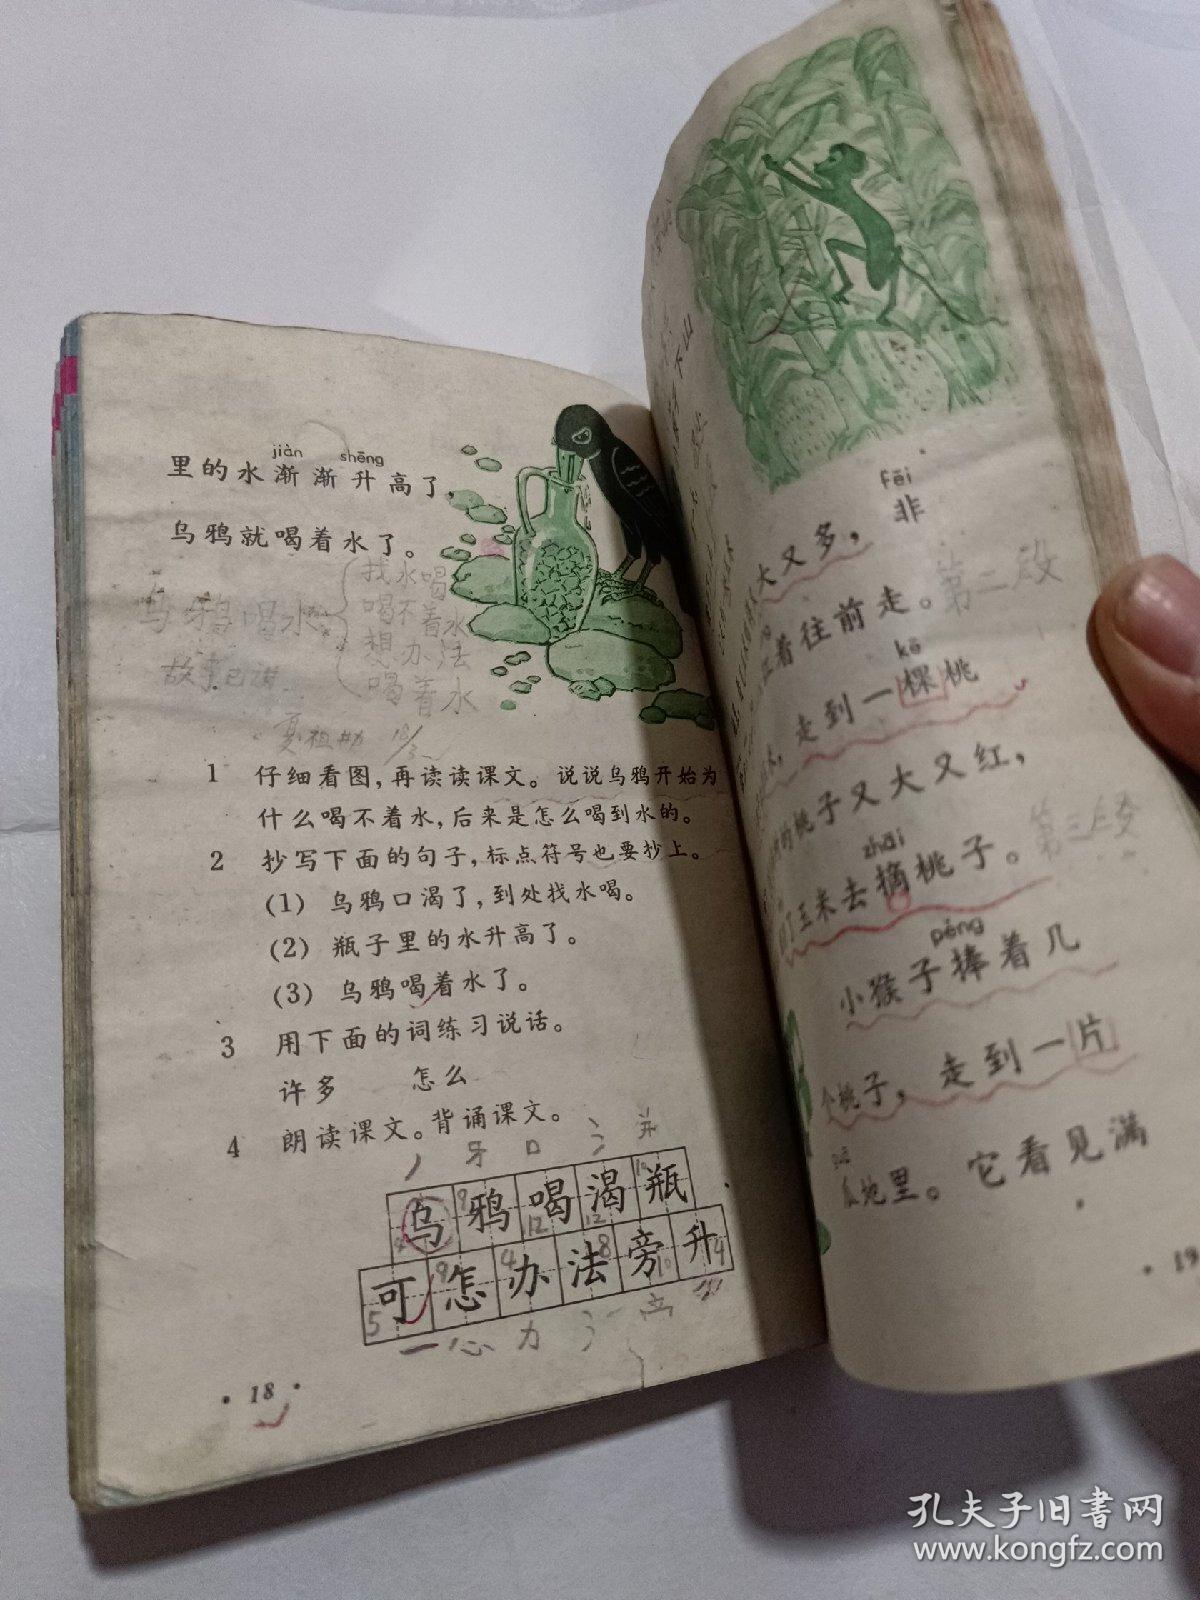 jiàn shēng
里的水渐渐升高了
乌鸦就喝着水了。
乌鸦喝水
找水喝
喝不着水
想办法
喝着水
1 仔细看图，再读读课文。说说乌鸦开始为
什么喝不着水，后来是怎么喝到水的。
2 抄写下面的句子，标点符号也要抄上。
(1) 乌鸦口渴了，到处找水喝。
(2) 瓶子里的水升高了。
(3) 乌鸦喝着水了。
3 用下面的词练习说话。
许多 怎么
4 朗读课文。背诵课文。
丿 牙 口 氵 并
乌 鸦 喝 渴 瓶
9 12 12 10
可 怎 办 法 旁 升
5 9 4 8 10 4
·18·
下山
fēi
大又多，非
着往前走。
第二段
kē
走到一棵桃
的桃子又大又红，
zhāi
了玉米去摘桃子。
第三段
pěng
小猴子捧着几
个桃子，走到一片
瓜地里。它看见满
·19
孔夫子旧书网
www.kongfz.com